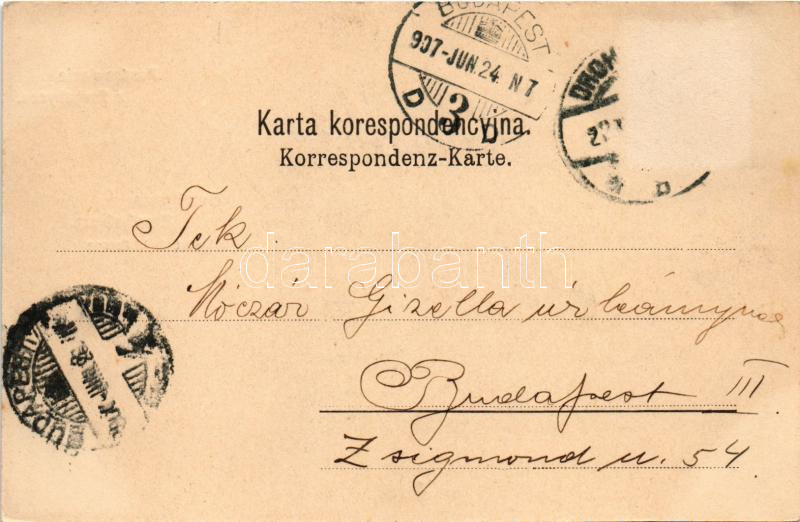 BUDAPEST
907-JUN.24. N 7
D 3 D
DROH
Karta korespondencyjna.
Korrespondenz-Karte.
Tek.
Móczár Gizella úrleánynak
Budapest III
Zsigmond u. 54
BUDAPEST
darabanth